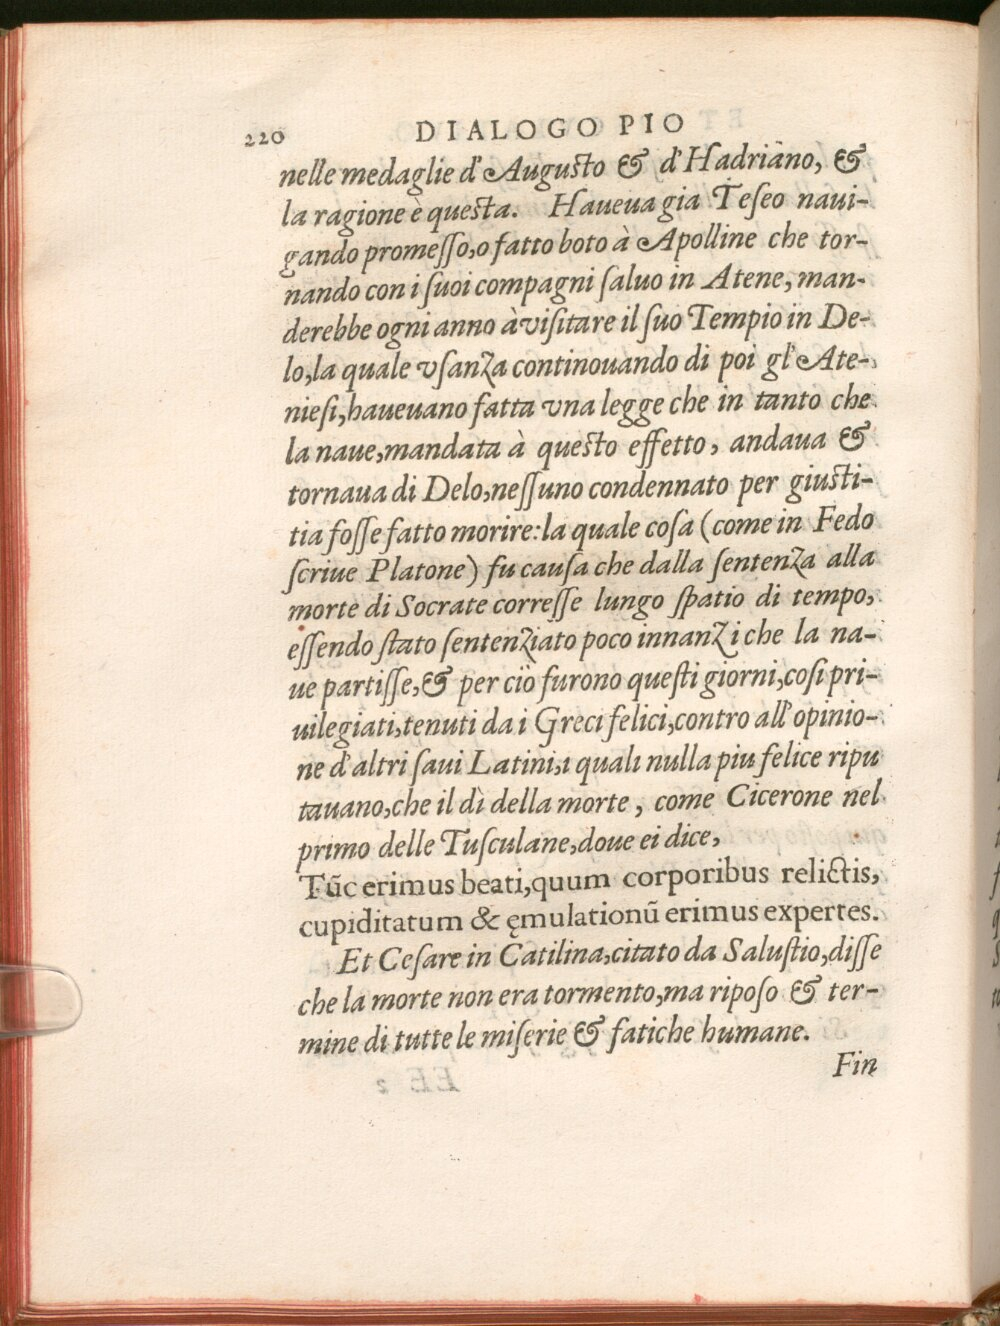 220 DIALOGO PIO
nelle medaglie d'Augusto & d'Hadriano, &
la ragione è questa. Haueua gia Teseo naui-
gando promesso, o fatto boto à Apolline che tor-
nando con i suoi compagni saluo in Atene, man-
derebbe ogni anno à visitare il suo Tempio in De-
lo, la quale vsanza continouando di poi gl'Ate-
niesi, haueuano fatta vna legge che in tanto che
la naue, mandata à questo effetto, andaua &
tornaua di Delo, nessuno condennato per giusti-
tia fosse fatto morire: la quale cosa (come in Fedo
scriue Platone) fu causa che dalla sentenza alla
morte di Socrate corresse lungo spatio di tempo,
essendo stato sentenziato poco innanzi che la na-
ue partisse, & per ciò furono questi giorni, cosi pri-
uilegiati, tenuti da i Greci felici, contro all'opinio-
ne d'altri saui Latini, i quali nulla piu felice ripu
tauano, che il dì della morte, come Cicerone nel
primo delle Tusculane, doue ei dice,
Tūc erimus beati, quum corporibus relictis,
cupiditatum & ęmulationū erimus expertes.
Et Cesare in Catilina, citato da Salustio, disse
che la morte non era tormento, ma riposo & ter-
mine di tutte le miserie & fatiche humane.
Fin